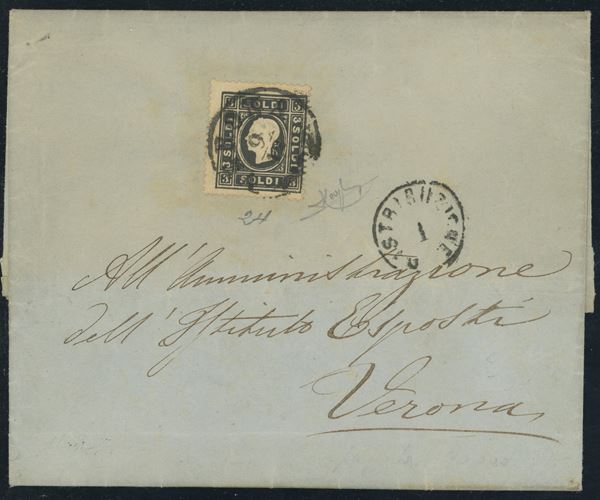 SOLDI
3 SOLDI
3 SOLDI
SOLDI
24
DISTRIBUZIONE
1
All'Amministrazione
dell'Istituto Esposti
Verona